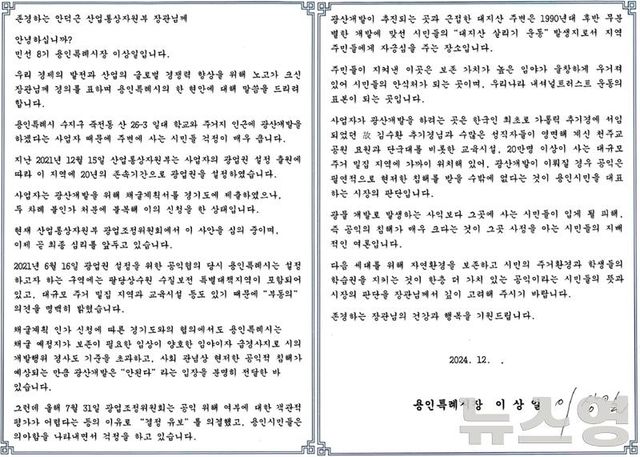 존경하는 안덕근 산업통상자원부 장관님께
안녕하십니까?
민선 8기 용인특례시장 이상일입니다.
우리 경제의 발전과 산업의 글로벌 경쟁력 향상을 위해 노고가 크신
장관님께 경의를 표하며 용인특례시의 한 현안에 대해 말씀을 드리려
합니다.
용인특례시 수지구 죽전동 산 26-3 일대 학교와 주거지 인근에 광산개발을
하겠다는 사업자 때문에 주변에 사는 시민들 걱정이 매우 큽니다.
지난 2021년 12월 15일 산업통상자원부는 사업자의 광업권 설정 출원에
따라 이 지역에 20년의 존속기간으로 광업권을 설정하였습니다.
사업자는 광산개발을 위해 채굴계획서를 경기도에 제출하였으나,
두 차례 불인가 처분에 불복해 이의 신청을 한 상태입니다.
현재 산업통상자원부 광업조정위원회에서 이 사안을 심의 중이며,
이제 곧 최종 심리를 앞두고 있습니다.
2021년 6월 16일 광업권 설정을 위한 공익협의 당시 용인특례시는 설정
하고자 하는 구역에는 팔당상수원 수질보전 특별대책지역이 포함되어
있고, 대규모 주거 밀집 지역과 교육시설 등도 있기 때문에 "부동의"
의견을 명백히 밝혔습니다.
채굴계획 인가 신청에 따른 경기도와의 협의에서도 용인특례시는
채굴 예정지가 보존이 필요한 입상이 양호한 임야이자 급경사지로 시의
개발행위 경사도 기준을 초과하고, 사회 관념상 현저한 공익적 침해가
예상되는 만큼 광산개발은 "안된다" 라는 입장을 분명히 전달한 바
있습니다.
그런데 올해 7월 31일 광업조정위원회는 공익 위해 여부에 대한 객관적
평가가 어렵다는 등의 이유로 "결정 유보"를 의결했고, 용인시민들은
의아함을 나타내면서 걱정을 하고 있습니다.
광산개발이 추진되는 곳과 근접한 대지산 주변은 1990년대 후반 무분
별한 개발에 맞선 시민들의 "대지산 살리기 운동" 발생지로서 지역
주민들에게 자긍심을 주는 장소입니다.
주민들이 지켜낸 이곳은 보존 가치가 높은 임야가 울창하게 우거져
있어 시민들의 안식처가 되는 곳이며, 우리나라 내셔널트러스트 운동의
표본이 되는 곳입니다.
사업자가 광산개발을 하려는 곳은 한국인 최초로 가톨릭 추기경에 서임
되었던 故 김수환 추기경님과 수많은 성직자들이 영면해 계신 천주교
공원 묘원과 단국대를 비롯한 교육시설, 20만명 이상이 사는 대규모
주거 밀집 지역에 가까이 위치해 있어, 광산개발이 이뤄질 경우 공익은
필연적으로 현저한 침해를 받을 수밖에 없다는 것이 용인시민을 대표
하는 시장의 판단입니다.
광물 개발로 발생하는 사익보다 그곳에 사는 시민들이 입게 될 피해,
즉 공익의 침해가 매우 크다는 것이 그곳 사정을 아는 시민들의 지배
적인 여론입니다.
다음 세대를 위해 자연환경을 보존하고 시민의 주거환경과 학생들의
학습권을 지키는 것이 한층 더 가치 있는 공익이라는 시민들의 뜻과
시장의 판단을 장관님께서 깊이 고려해 주시기 바랍니다.
존경하는 장관님의 건강과 행복을 기원드립니다.
2024. 12. .
용인특례시장 이 상 일
뉴스영